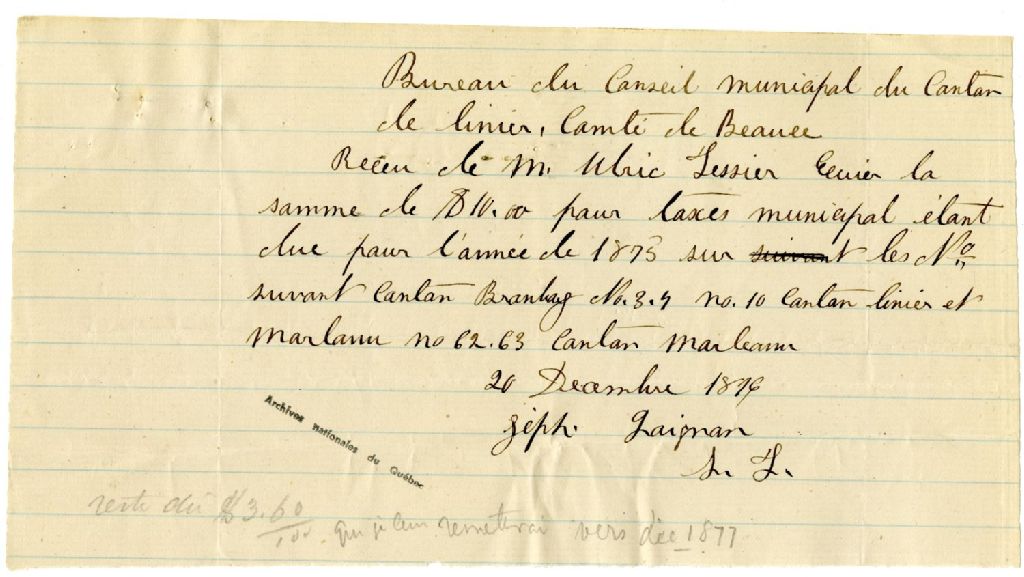 Bureau du Conseil municipal du Canton
de linier, Comté de Beauce
Receu de M. Ulric Tessier Ecuier la
somme de $10.00 pour taxes municipal étant
due pour l'année de 1875 sur suivant les Nos
suvant Canton No. 3.4 no. 10 Canton linier et
Marlauu no 62.63 Canton Marleauu
20 Decembre 1876
Jéph. Gaignan
S. T.
Archives nationales du Québec
reste du $3.60/100 que je leur remetterai vers déc 1877